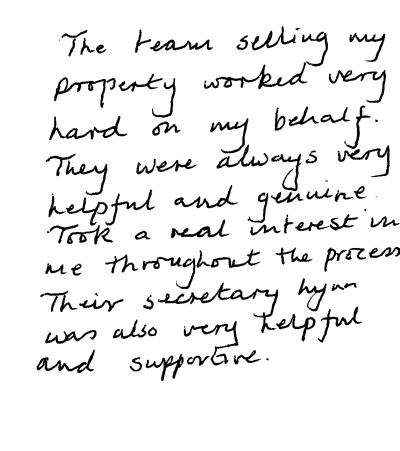 The team selling my
property worked very
hard on my behalf.
They were always very
helpful and genuine.
Took a real interest in
me throughout the process
Their secretary Lynn
was also very helpful
and supportive.